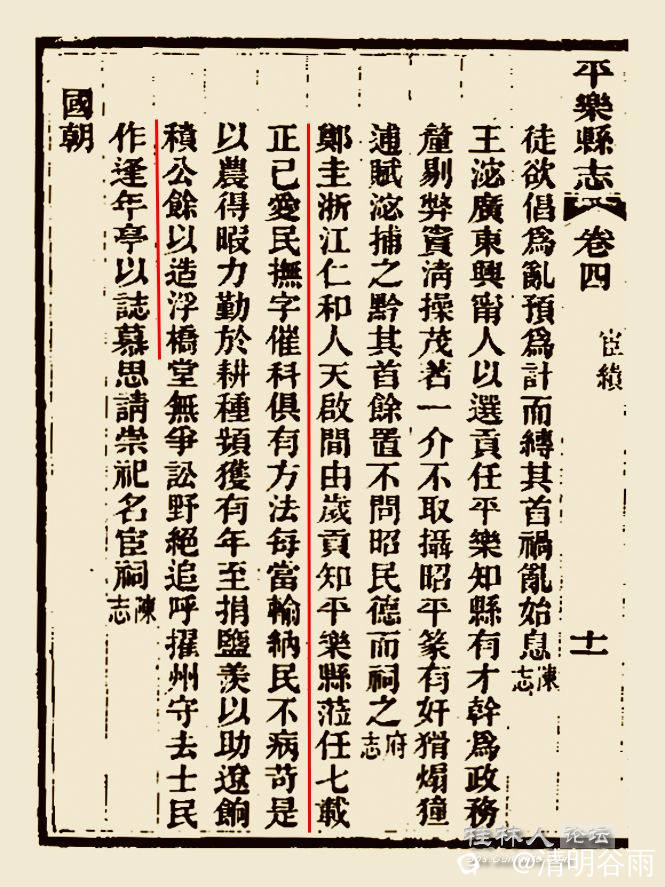 平樂縣志 卷四 宦績 十一
徒欲倡爲亂預爲計而縛其首禍亂始息陳志
王淧廣東興甯人以選貢任平樂知縣有才幹爲政務
釐剔弊竇淸操茂著一介不取攝昭平篆有奸猾煽獞
逋賦淧捕之黔其首餘置不問昭民德而祠之府志
鄭圭浙江仁和人天啟間由歲貢知平樂縣蒞任七載
正己愛民撫字催科俱有方法每當輸納民不病苛是
以農得暇力勤於耕種頻獲有年至捐鹽羨以助遼餉
積公餘以造浮橋堂無爭訟野絕追呼擢州守去士民
作逢年亭以誌慕思請崇祀名宦祠陳志
國朝
桂林人论坛
@清明谷雨